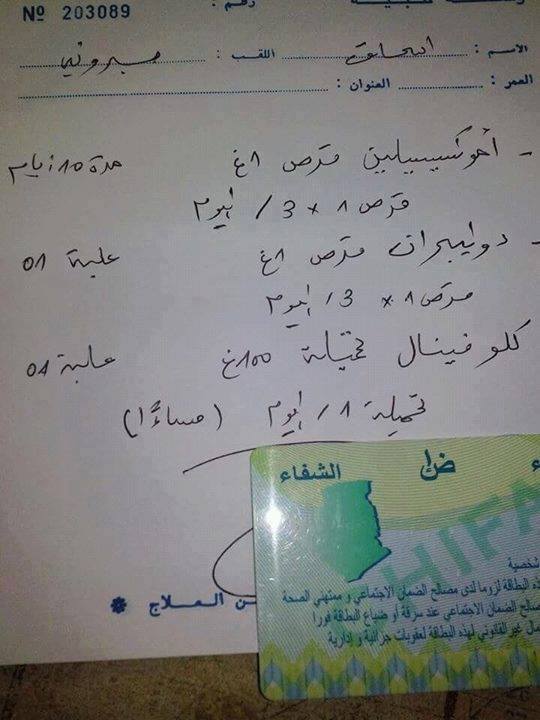 № 203089
الاسم : اللقب :
العمر : العنوان :
- أموكسيسيلين قرص 1غ مدة 10 أيام
قرص 1 × 3 / اليوم
- دوليبران قرص 1غ علبة 01
قرص 1 × 3 / اليوم
كلوفينال تحميلة 100غ علبة 01
تحميلة 1 / اليوم (مساءًا)
الشفاء
شخصية
البطاقة لزوما لدى مصالح الضمان الاجتماعي و ممتهني الصحة
صالح الضمان الاجتماعي عند سرقة أو ضياع البطاقة فورا
غير القانوني لهذه البطاقة لعقوبات جزائية و إدارية
ن العلاج *